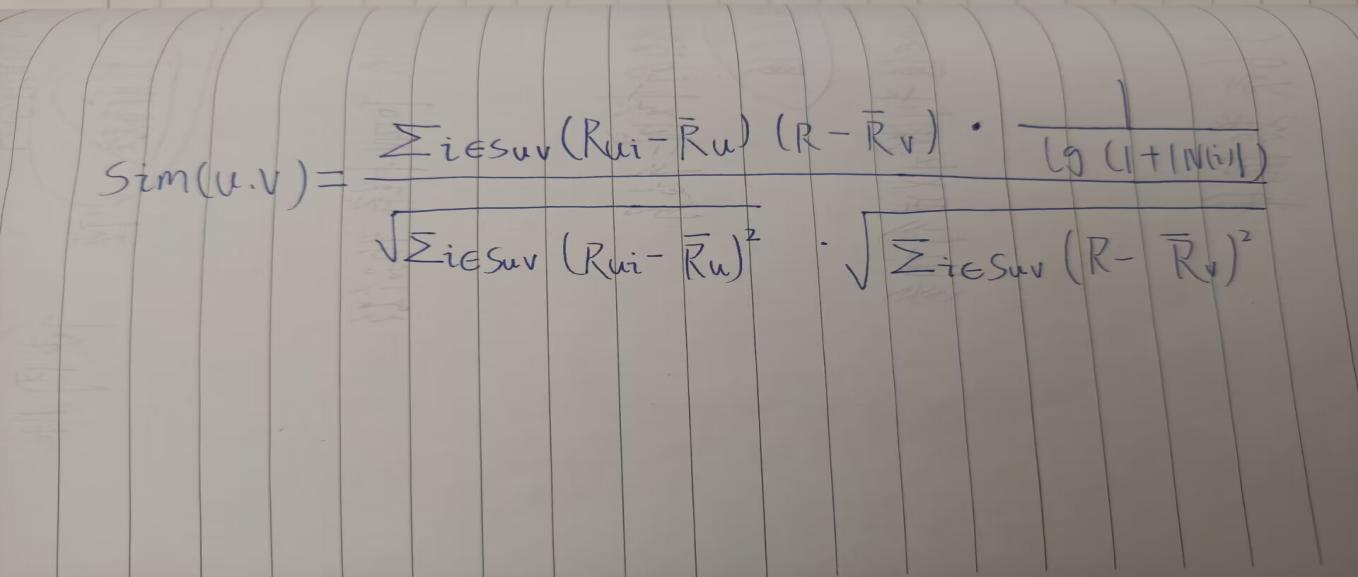 Sim(u.v) = \frac{\sum_{i \in Suv} (R_{ui} - \bar{R}_u) (R - \bar{R}_v) \cdot \frac{1}{lg (1 + |N(i)|)}}{\sqrt{\sum_{i \in Suv} (R_{ui} - \bar{R}_u)^2} \cdot \sqrt{\sum_{i \in Suv} (R - \bar{R}_v)^2}}